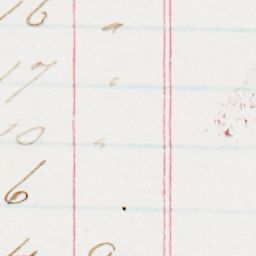 16 "
17 "
10 "
6